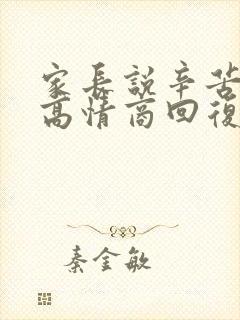 家長說辛苦
高情商回復
秦金敏